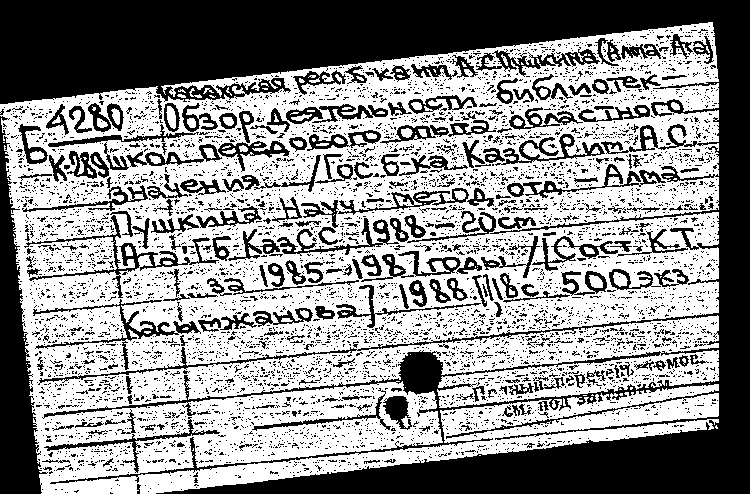 Казахская респ. б-ка им. А.С.Пушкина (Алма-Ата)
Б 4280 Обзор деятельности библиотек-
К-289 школ передового опыта областного
значения... /Гос. б-ка КазССР им. А.С
Пушкина. Науч.-метод. отд. – Алма-
Ата: ГБ КазСС, 1988. – 20см
... за 1985–1987 годы /[Сост. К.Т.
Касымжанова]. 1988. [1],18с. 500 экз
Полный перечень томов
см. под заглавием